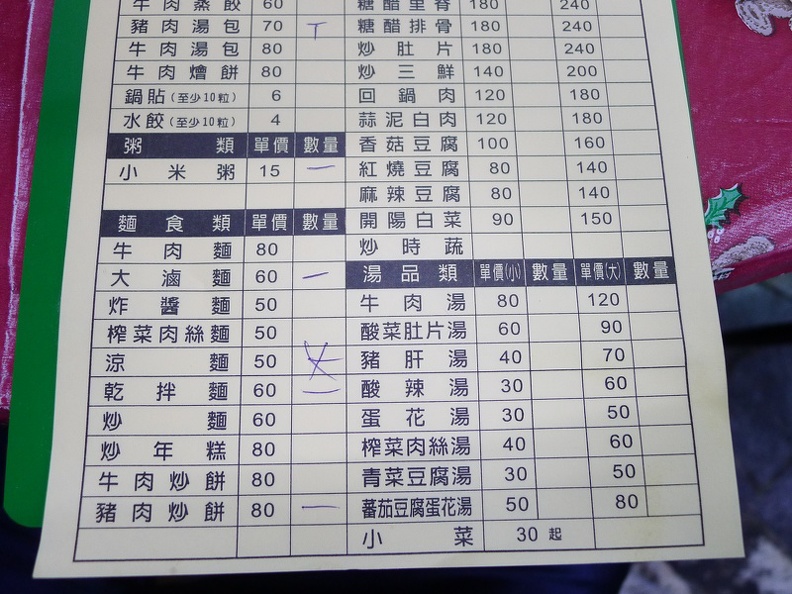 牛肉蒸餃 60
豬肉湯包 70
牛肉湯包 80
牛肉燴餅 80
鍋貼(至少10粒) 6
水餃(至少10粒) 4
粥類 單價 數量
小米粥 15 一
麵食類 單價 數量
牛肉麵 80
大滷麵 60 一
炸醬麵 50
榨菜肉絲麵 50
涼麵 50
乾拌麵 60 二
炒麵 60
炒年糕 80
牛肉炒餅 80
豬肉炒餅 80 一
糖醋里脊 180 240
糖醋排骨 180 240
炒肚片 180 240
炒三鮮 140 200
回鍋肉 120 180
蒜泥白肉 120 180
香菇豆腐 100 160
紅燒豆腐 80 140
麻辣豆腐 80 140
開陽白菜 90 150
炒時蔬
湯品類 單價(小) 數量 單價(大) 數量
牛肉湯 80 120
酸菜肚片湯 60 90
豬肝湯 40 70
酸辣湯 30 60
蛋花湯 30 50
榨菜肉絲湯 40 60
青菜豆腐湯 30 50
蕃茄豆腐蛋花湯 50 80
小菜 30起